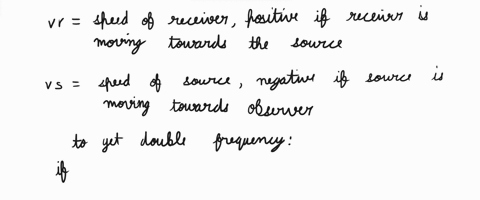 vr = speed of receiver, positive if receivrr is
moving towards the source
vs = speed of source, negative if source is
moving towards observer
to yet double frequency:
if